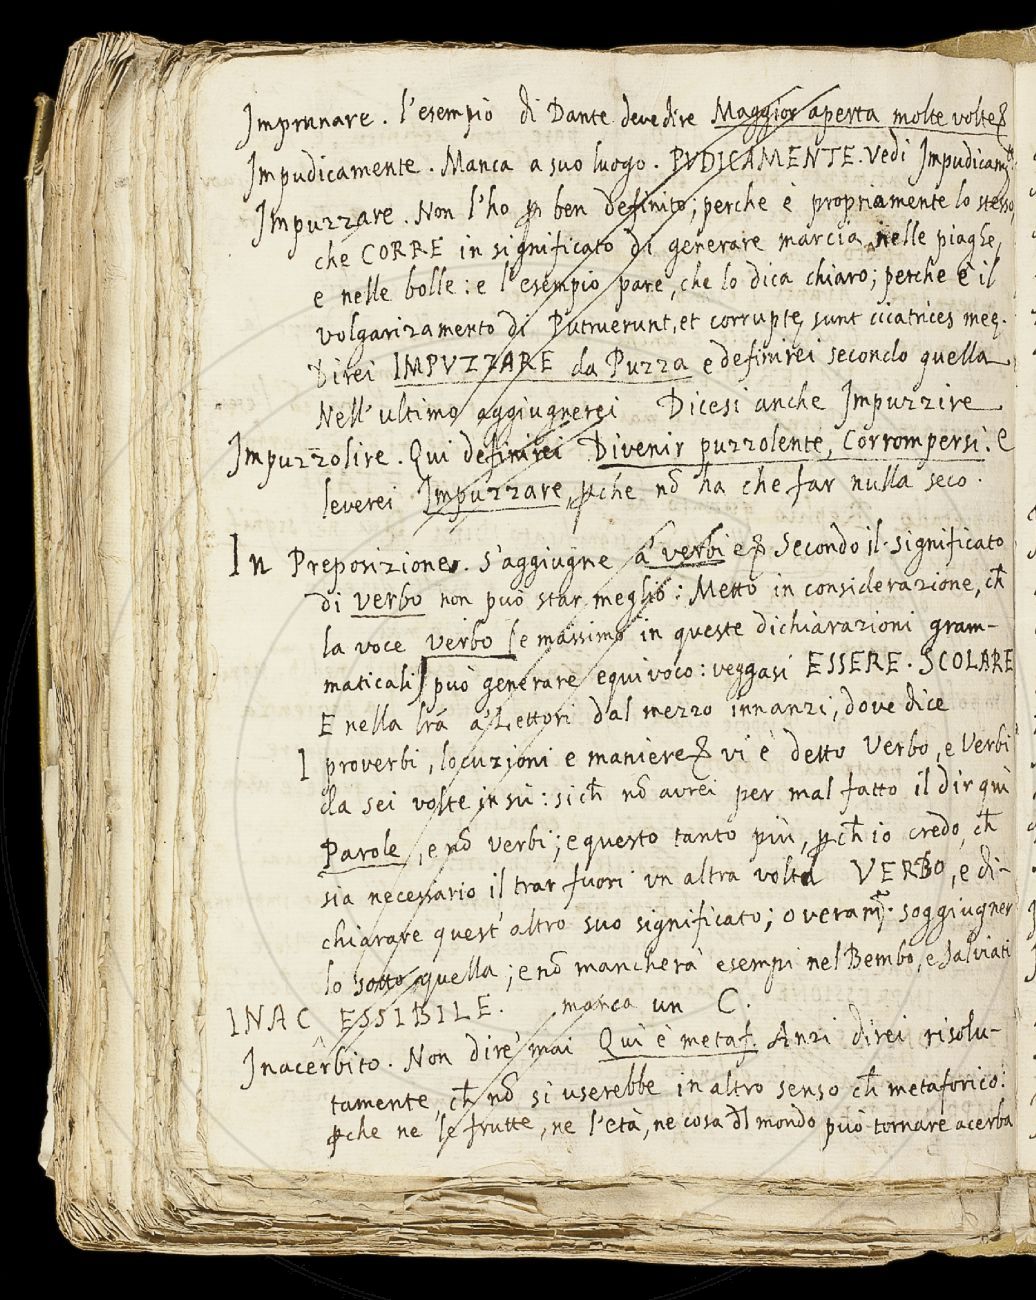 Imprunare. l'esempio di Dante deve dire Maggior aperta molte volte &
Impudicamente. Manca a suo luogo. PVDICAMENTE. Vedi Impudicam.te
Impuzzare. Non l'ho p ben definito; perche è propriamente lo stesso,
che CORRE in significato di generare marcia nelle piaghe,
e nelle bolle: e l'esempio pare, che lo dica chiaro; perche è il
volgarizamento di Putruerunt, et corruptę sunt cicatrices meę.
Direi IMPVZZARE da Puzza e definirei secondo quella
Nell'ultimo aggiugnerei Dicesi anche Impuzzire
Impuzzolire. Qui definirei Divenir puzzolente, Corrompersi. e
leverei Impuzzare, pche nō ha che far nulla seco.
In Preposizione. S'aggiugne a' verbi e & Secondo il significato
di verbo non può star meglio: Metto in considerazione, ch̄
la voce verbo (e massimo in queste dichiarazioni gram-
maticali) può generare equivoco: veggasi ESSERE. SCOLARE
E nella lrā a' Lettori dal mezzo innanzi, dove dice
I proverbi, locuzioni e maniere & vi è detto Verbo, e Verbi
da sei volte in sù: sich̄ nō avrei per mal fatto il dir quì
Parole, e nō verbi; e questo tanto più, pch̄ io credo, ch̄
sia necessario il trar fuori un altra volta VERBO, e di-
chiarare quest'altro suo significato; overam.te soggiugner
lo sotto quella; e nō mancherà esempi nel Bembo, e Salviati
INAC^ESSIBILE. manca un C.
Inacerbito. Non dire' mai Quì è metaf. Anzi direi risolu-
tamente, ch̄ nō si userebbe in altro senso ch̄ metaforico:
pche ne le frutte, ne l'età, ne cosa dl mondo può tornare acerba